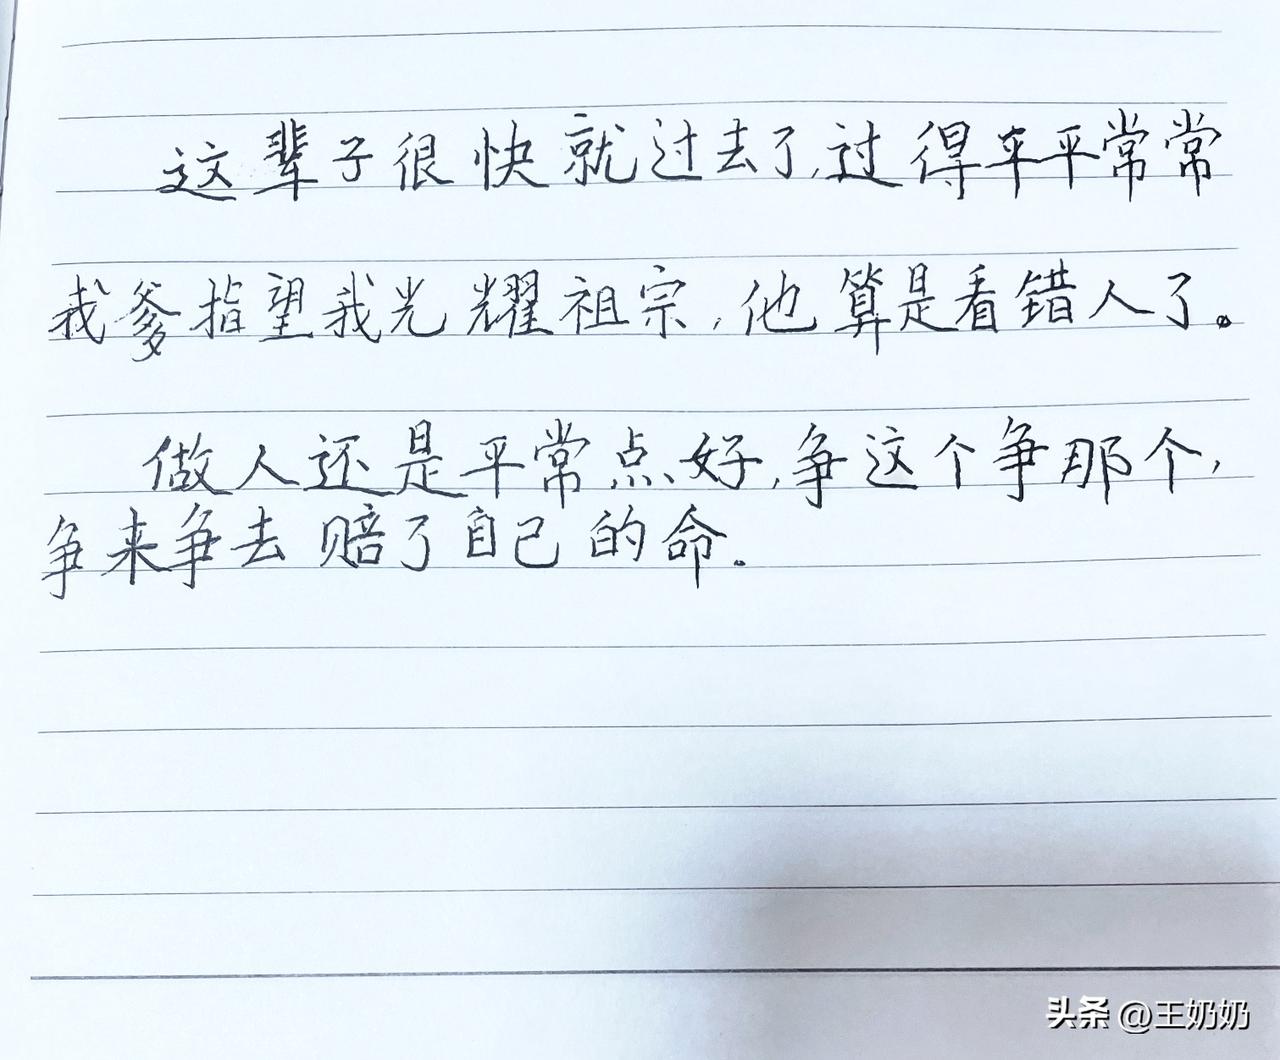 这辈子很快就过去了,过得平平常常
我爹指望我光耀祖宗,他算是看错人了。
做人还是平常点好,争这个争那个,
争来争去赔了自己的命。
头条 @王奶奶